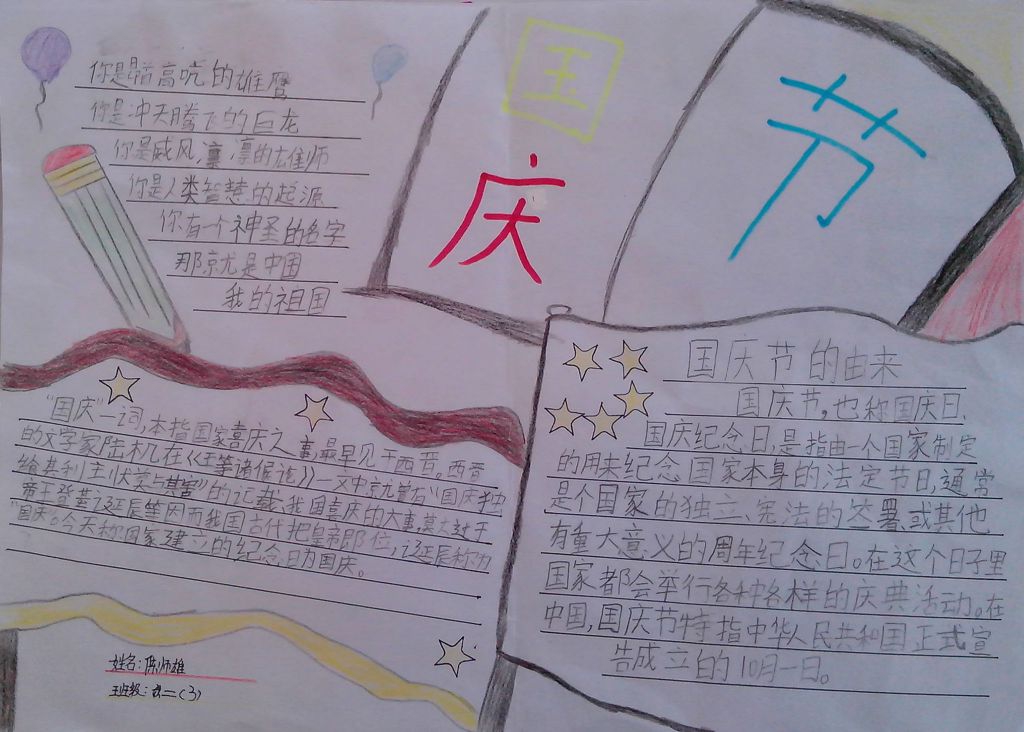 国
庆
节
你是崤高吭的雄鹰
你是冲天腾飞的巨龙
你是威风凛凛的雄师
你是人类智慧的起源
你有一个神圣的名字
那就是中国
我的祖国
"国庆"一词,本指国家喜庆之事,最早见于西晋。西晋
的文学家陆机在《五等诸侯论》一文中就曾有"国庆独
飨其利,主忧莫与其害"的记载、我国喜庆的大事莫大过于
帝王登基、诞辰等因而我国古代把皇帝即位,诞辰称为
"国庆"。今天称国家建立的纪念日为国庆。
姓名:陈师雄
班级:二(3)
国庆节的由来
国庆节,也称国庆日、
国庆纪念日,是指由一个国家制定
的用来纪念国家本身的法定节日,通常
是个国家的独立、宪法的签署或其他
有重大意义的周年纪念日。在这个日子里
国家都会举行各种各样的庆典活动。在
中国,国庆节特指中华人民共和国正式宣
告成立的10月一日。